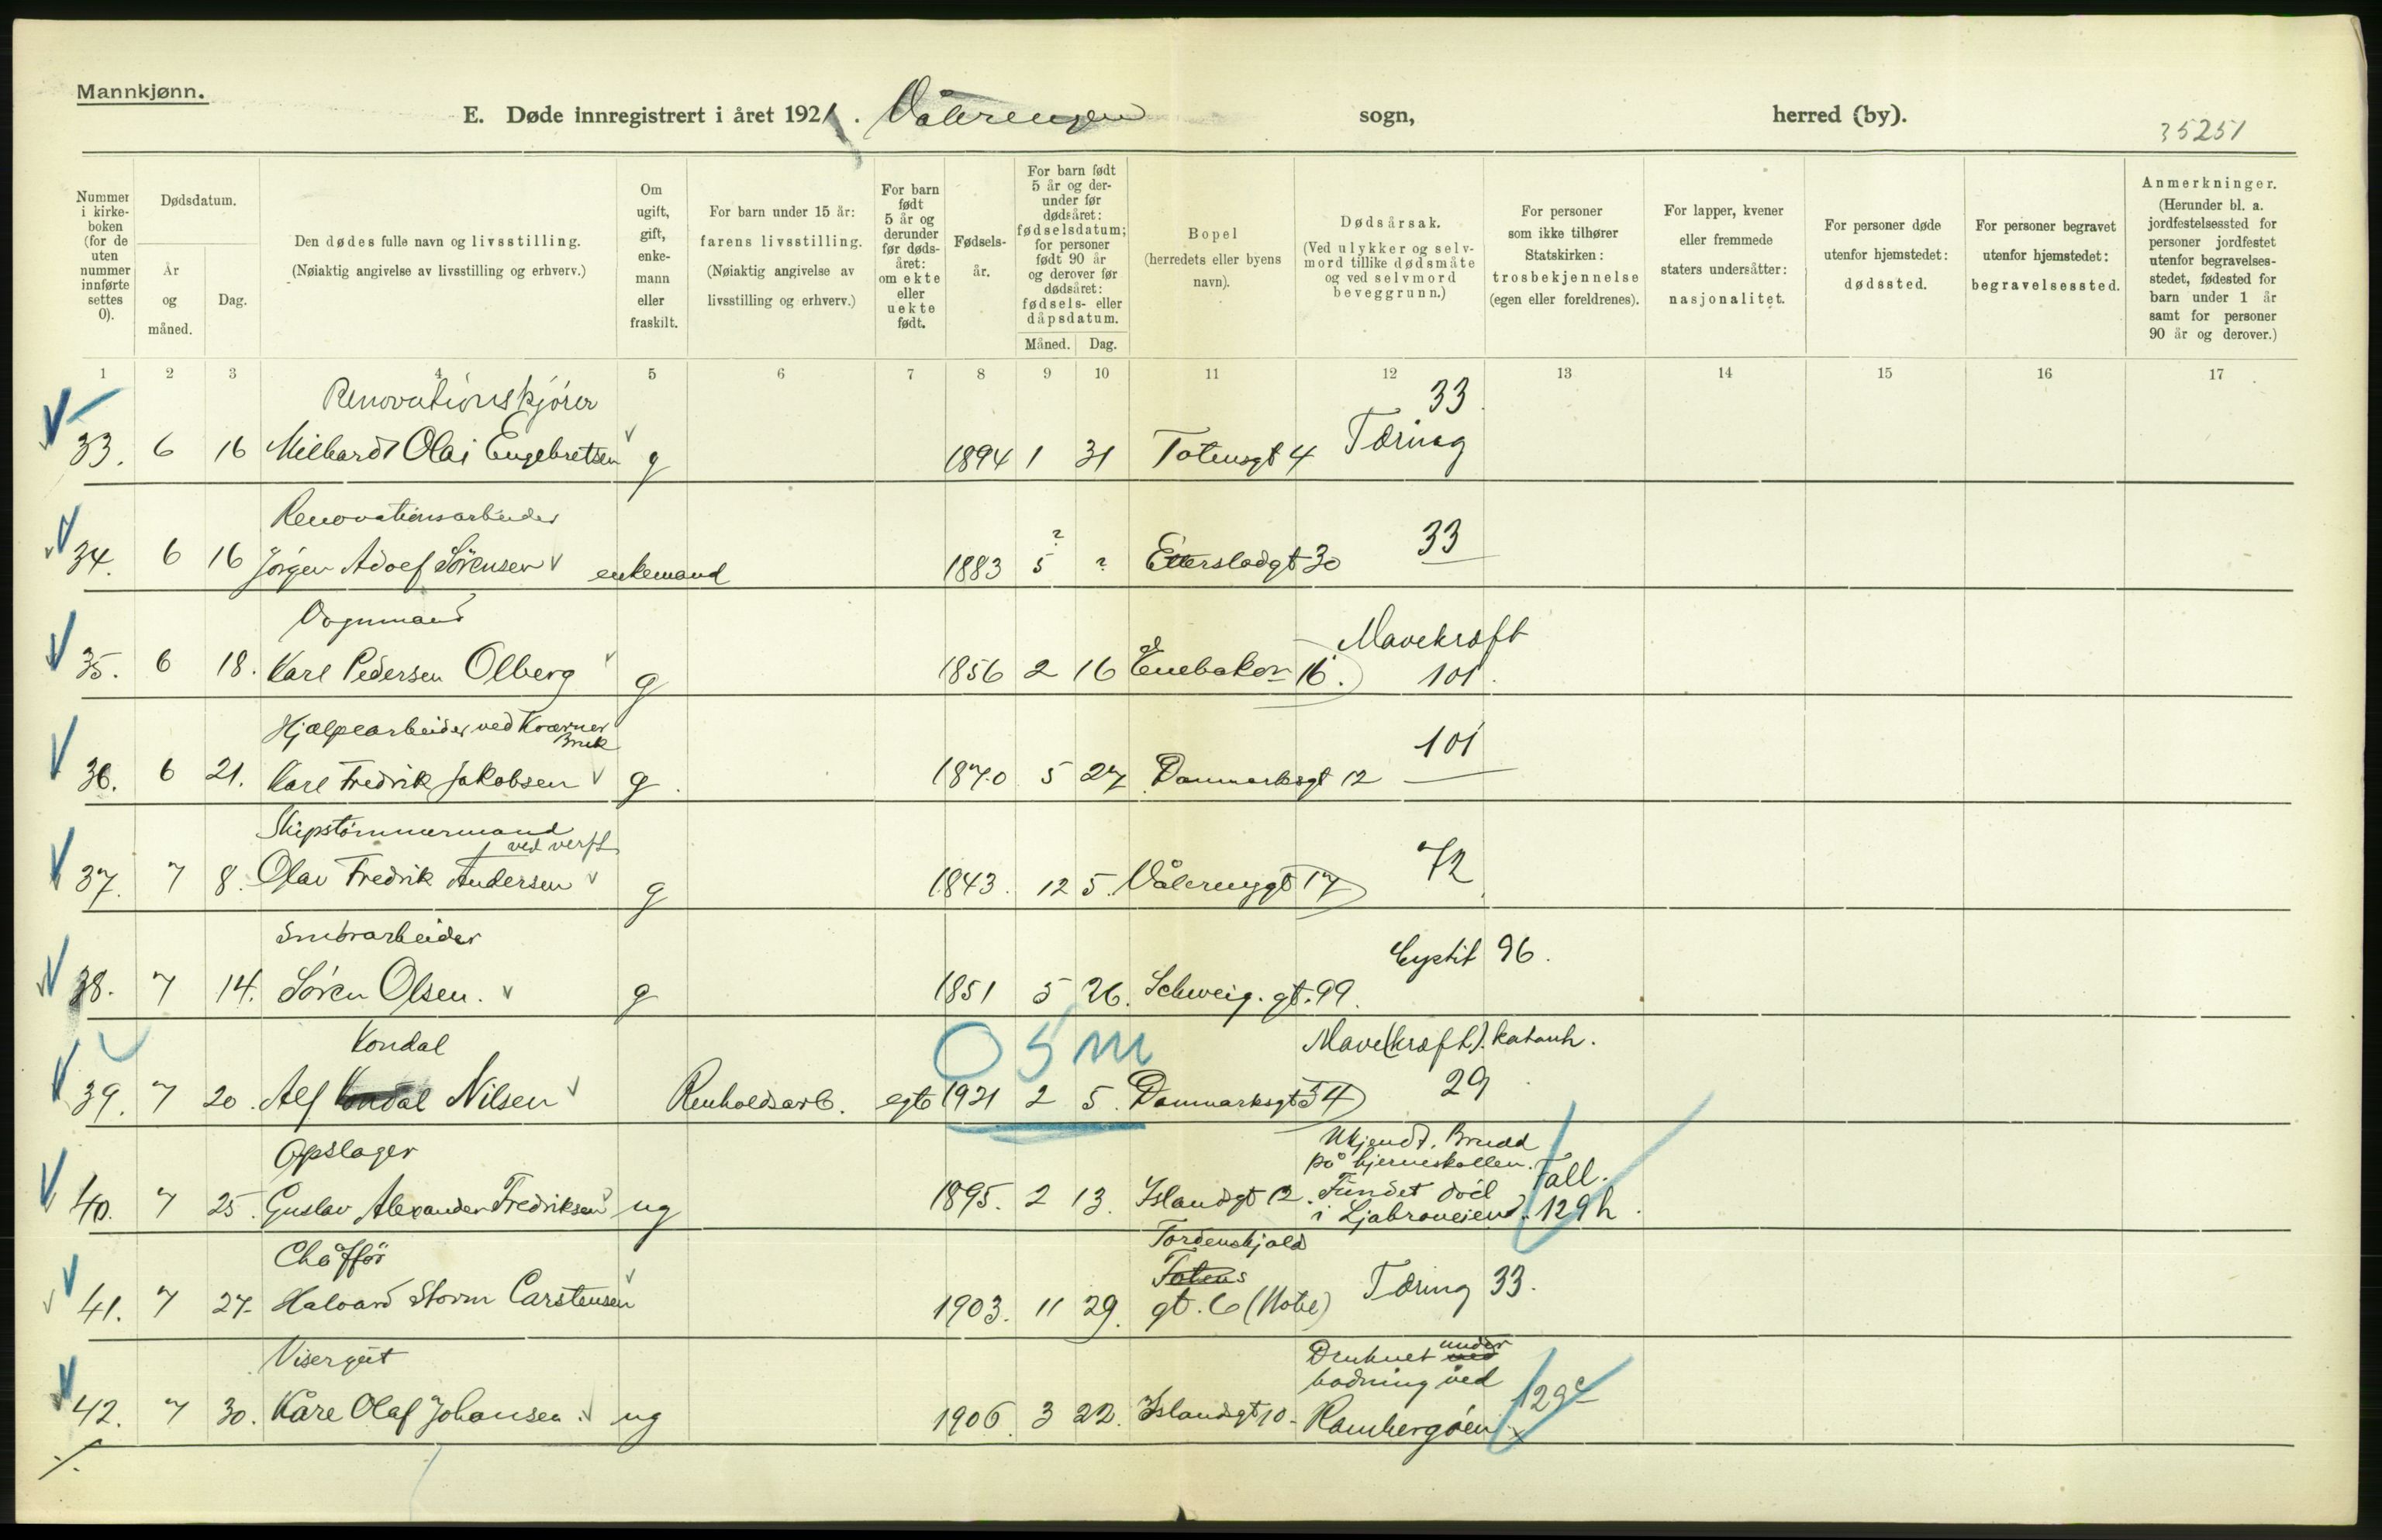 Mannkjønn.
E. Døde innregistrert i året 1921. Vålerengen sogn, herred (by).
35251
Nummer i kirke- boken (for de uten nummer innførte settes 0).
Dødsdatum.
År og måned.
Dag.
Den dødes fulle navn og livsstilling.
(Nøiaktig angivelse av livsstilling og erhverv.)
Om ugift, gift, enke- mann eller fraskilt.
For barn under 15 år:
farens livsstilling.
(Nøiaktig angivelse av livsstilling og erhverv.)
For barn født 5 år og derunder før døds- året: om ekte eller uekte født.
Fødsels- år.
For barn født 5 år og der- under før dødsåret: fødselsdatum; for personer født 90 år og derover før dødsåret: fødsels- eller dåpsdatum.
Måned. Dag.
Bopel
(herredets eller byens navn).
Dødsårsak.
(Ved ulykker og selv- mord tillike dødsmåte og ved selvmord beveggrunn.)
For personer som ikke tilhører Statskirken:
trosbekjennelse
(egen eller foreldrenes).
For lapper, kvener eller fremmede staters undersåtter:
nasjonalitet.
For personer døde utenfor hjemstedet:
dødssted.
For personer begravet utenfor hjemstedet:
begravelsessted.
Anmerkninger.
(Herunder bl. a. jordfestelsessted for personer jordfestet utenfor begravelses- stedet, fødested for barn under 1 år samt for personer 90 år og derover.)
1 2 3 4 5 6 7 8 9 10 11 12 13 14 15 16 17
Renovationskjører 33
33. 6 16 Olai Engebretsen g 1894 1 31 Totensgt 4 Tæring
Renovationsarbeider
34. 6 16 Jørgen Adolf Sörensen enkemand 1883 5 ? ? Etterstadgt 30 33
Vognmand Mavekræft
35. 6 18. Karl Pedersen Olberg g 1856 2 16 Enebakv 16. 101.
Hjælpearbeider ved Kværner Bruk 101
36. 6 21. Karl Fredrik Jakobsen g. 1870 5 27 Danmarksgt 12
Skipstömmermand ved verft
37. 7 8. Olav Fredrik Andersen g 1843. 12 5. Vålerenggt 17 72
Smörarbeider Cystit 96.
38. 7 14. Sören Olsen. g 1851 5 26. Schweig. gt. 99.
0 5 m
Kondal Mave(kræft). katarrh.
39. 7 20. Alf Kondal Nilsen Renholdsarb. egte 1921 2 5. Danmarksgt 54 29
Opslager Ukjendt. Brudd på hjerneskallen. Fall.
40. 7 25. Gustav Alexander Fredriksen ug 1895. 2 13. Islandsgt 12. Fundet död i Ljabroveien. 129h.
Chåffør Tordenskjold
41. 7 27. Halvard Storm Carstensen 1903. 11 29. Totens gt. 6 (Hotel) Tæring 33.
Visergut Druknet ved under badning ved
42. 7 30. Kåre Olaf Johansen. ug 1906. 3 22. Islandsgt 10- Rambergöen 129c